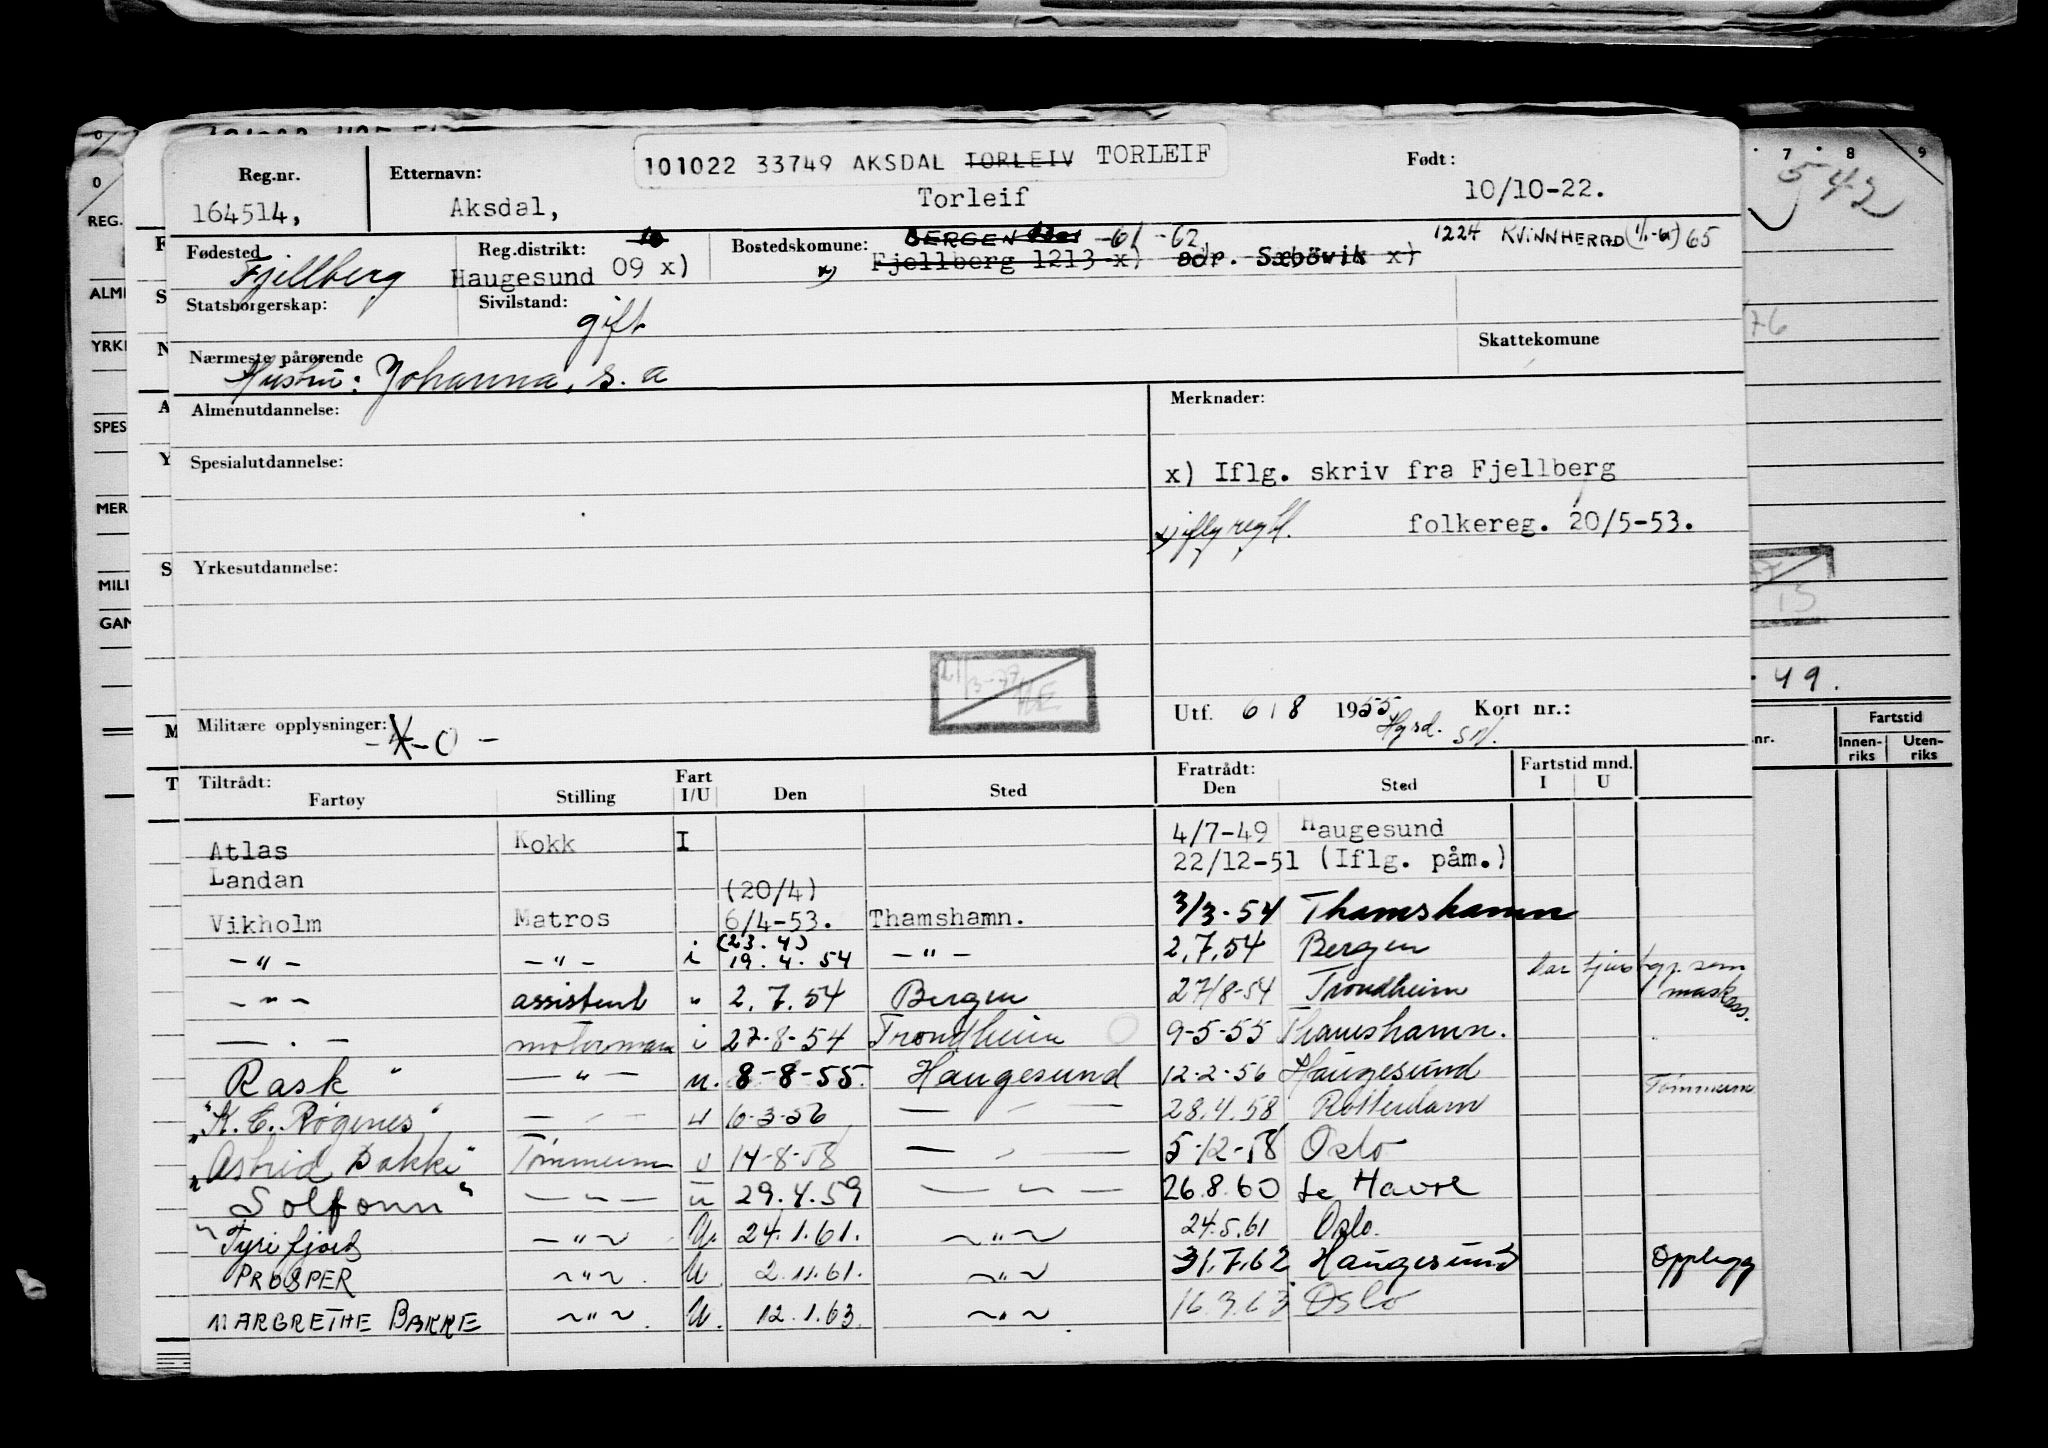 101022 33749 AKSDAL TORLEIV TORLEIF
Reg.nr. Etternavn: Født:
164514, Aksdal, Torleif 10/10-22.
Fødested Reg.distrikt: 10 Bostedskomune: BERGEN -61 -62 1224 KVINNHERAD 65
Fjellberg Haugesund 09 x) x) Fjellberg 1213 x) adr. Sæbövik x)
Statsborgerskap: Sivilstand:
gift
Skattekomune
Nærmeste pårørende
Hustru: Johanna, s. a
Almenutdannelse: Merknader:
Spesialutdannelse:
x) Iflg. skriv fra Fjellberg
folkereg. 20/5-53.
Yrkesutdannelse:
21/3-77
Utf. 6/8 1955 Kort nr.:
Hgsd.
Militære opplysninger:
- 0 -
Tiltrådt: Fart Fratrådt: Fartstid mnd.
Fartøy Stilling I/U Den Sted Den Sted I U
Atlas Kokk I 4/7-49 Haugesund
Landan 22/12-51 (Iflg. påm.)
(20/4)
Vikholm Matros 6/4-53. Thamshamn. 3/3-54 Thamshamn
(23.4)
-"- -"- i 19.4.54 -"- 2.7.54 Bergen
-"- assistent " 2.7.54 Bergen 27/8-54 Trondheim
-"- motormann i 27-8-54 Trondheim 9-5-55 Thamshamn.
Rask -"- u. 8-8-55. Haugesund 12-2-56 Haugesund
"K. E. Røgenes" -"- u 10-3-56 -"- 28.4.58 Rotterdam Tømmerm
"Astrid Bakke" Tømmerm u 14-8-58 -"- 5-12-58 Oslo
Solfonn" -"- u 29.4.59 -"- 26.8.60 Le Havre
"Tyrifjord -"- U. 24.1.61. -"- 24.5.61 Oslo.
PROSPER -"- U 2.11.61. -"- 31.7.62 Haugesund Opplegg
MARGRETHE BAKKE -"- U. 12.1.63. -"- 16.3.63 Oslo
REG.
ALM
YRK
SPES
MER
MILI
GAN
7 8 9
543
/76
15
49.
Fartstid
nr. Innen-riks Uten-riks